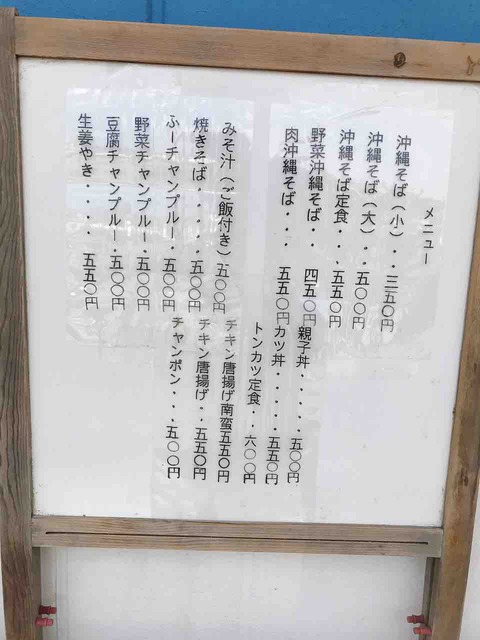 メニュー
沖縄そば（小）・・三五〇円
沖縄そば（大）・・五〇〇円
沖縄そば定食・・・五五〇円
野菜沖縄そば・・四五〇円
肉沖縄そば・・・五五〇円
親子丼・・・・・五〇〇円
カツ丼・・・・・五五〇円
トンカツ定食・・六〇〇円
みそ汁（ご飯付き）五〇〇円
焼きそば・・・・・五〇〇円
ふーチャンプルー・・五〇〇円
野菜チャンプルー・・五〇〇円
豆腐チャンプルー・五〇〇円
生姜やき・・・・五五〇円
チキン唐揚げ南蛮五五〇円
チキン唐揚げ・・五五〇円
チャンポン・・・五〇〇円